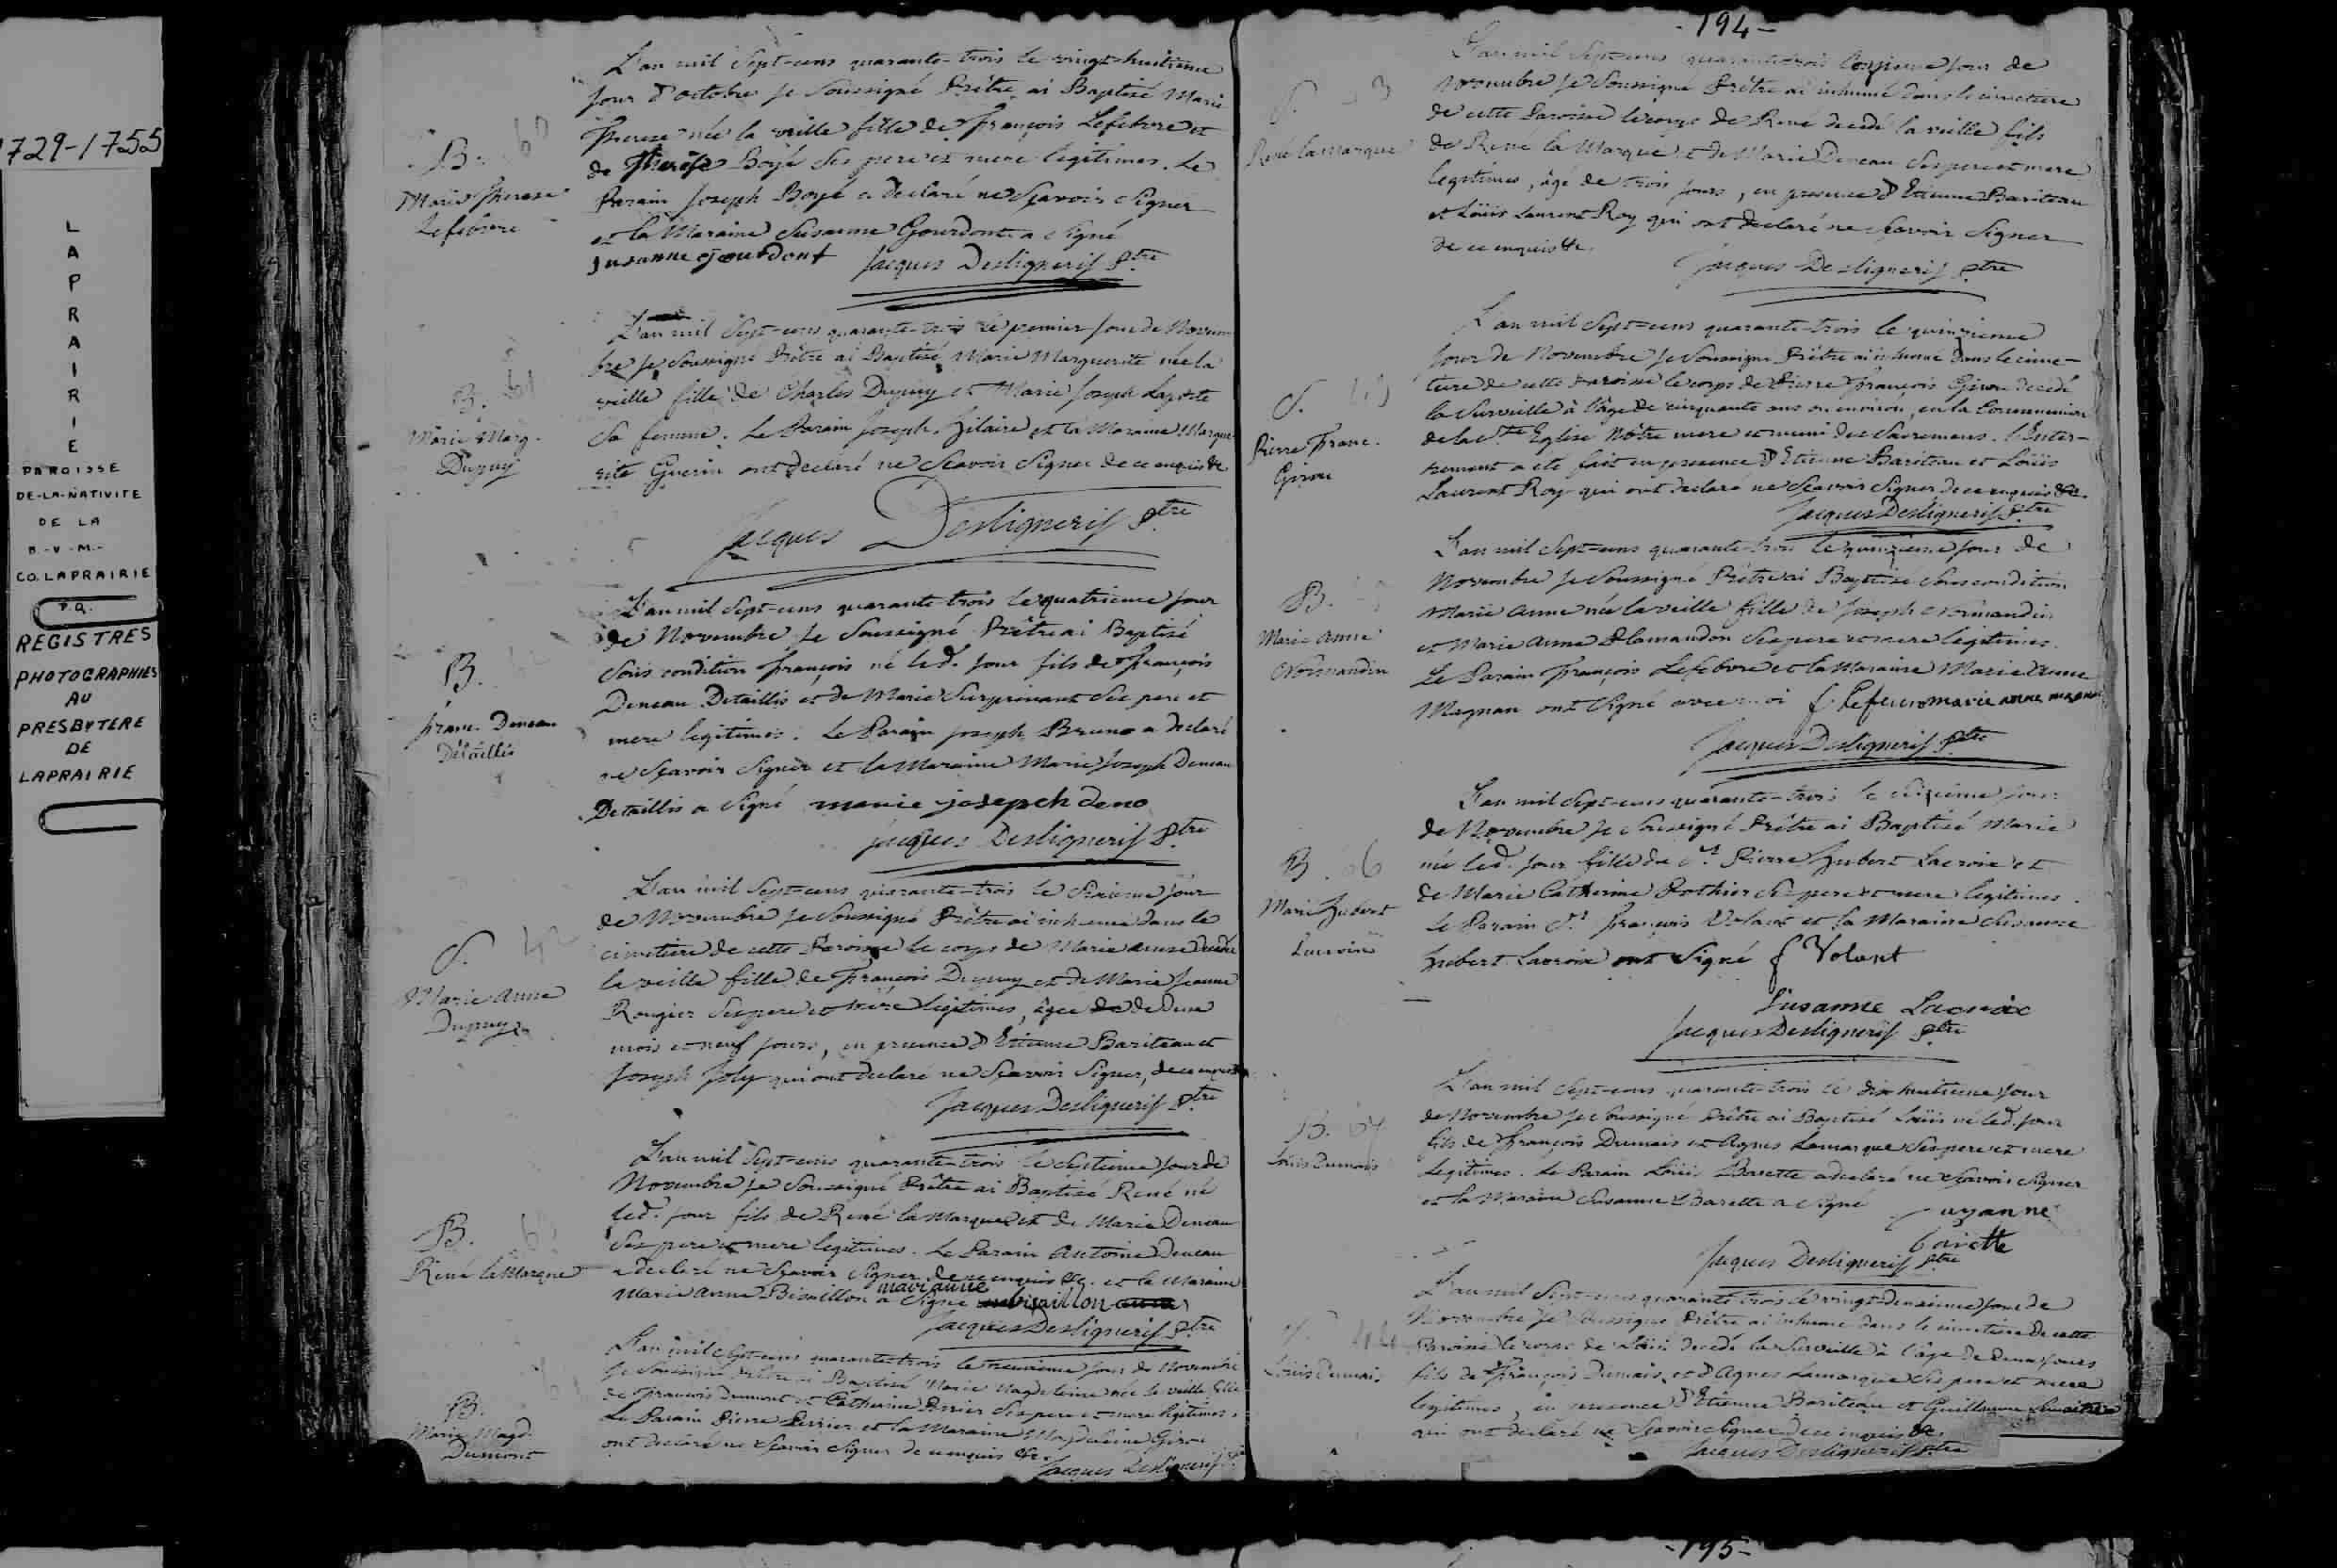 1729-1755
L
A
P
R
A
I
R
I
E
PAROISSE
DE-LA-NATIVITE
DE LA
B.-V.-M.-
CO. LAPRAIRIE
P.Q.
REGISTRES
PHOTOGRAPHIES
AU
PRESBYTERE
DE
LAPRAIRIE
B. 60
Marie Therese
Lefebvre
L'an mil Sept-cens quarante-trois le vingt-huitieme
jour d'octobre je Soussigné Prêtre ai Baptisé Marie
Therese née la veille fille de François Lefebvre et
de Therese Boyé Ses pere et mere legitimes. Le
Parain Joseph Boyé a declaré ne Sçavoir Signer
et la Maraine Susanne Gourdont a Signé
Susanne gourdont Jacques Deslignerif Ptre
B. 61
Marie Marg.
Dupuy
L'an mil Sept-cens quarante-trois le premier jour de Novem
bre je Soussigné Prêtre ai Baptisé Marie Marguerite née la
veille fille de Charles Dupuy et Marie Joseph Laporte
Sa femme. Le Parain Joseph Hilaire et la Maraine Margue
rite Guerin ont declaré ne Scavoir Signer de ce enquis &c
Jacques Deslignerif Ptre
B.
franc. Deneau
Detaillis
L'an mil Sept-cens quarante-trois le quatrieme jour
de Novembre je Soussigné Prêtre ai Baptisé
Sous condition François né led. jour fils de François
Deneau Detaillis et de Marie Surprenant Ses pere et
mere legitimes. Le Parain Joseph Bruno a declaré
ne Sçavoir Signer et la Maraine Marie Joseph Deneau
Detaillis a Signé marie josepch deno
Jacques Deslignerif Ptre
S. 42
Marie Anne
Dupuy
L'an mil Sept-cens quarante-trois le Sixieme jour
de Novembre je Soussigné Prêtre ai inhumé dans le
cimetiere de cette Paroisse le corps de Marie Anne decedée
la veille fille de François Dupuy et de Marie Jeanne
Rougier Ses pere et mere legitimes, âgée de deux
mois et neuf jours, en presence d'Etienne Bariteau et
Joseph Joly qui ont declaré ne Sçavoir Signer, de ce enquis
Jacques Deslignerif Ptre
B.
René la Marque
L'an mil Sept-cens quarante-trois le Septieme jour de
Novembre je Soussigné Prêtre ai Baptisé René né
led. jour fils de René la Marque et de Marie Deneau
Ses pere et mere legitimes. Le Parain Antoine Deneau
a declaré ne Sçavoir Signer de ce enquis &c. et la Maraine
Marie Anne Bisaillon a Signé marianne bisaillon
Jacques Deslignerif Ptre
B.
Marie Magd.
Dumont
L'an mil Sept-cens quarante-trois le neuvieme jour de Novembre
je Soussigné Prêtre ai Baptisé Marie Magdeleine née la veille fille
de François Dumont et Catherine Perrier Ses pere et mere legitimes.
Le Parain Pierre Perrier et la Maraine Magdeleine Girou
ont declaré ne Sçavoir Signer de ce enquis &c.
Jacques Deslignerif Ptre
-194-
S.
René la Marque
L'an mil Sept-cens quarante-trois jour de
Novembre je Soussigné Prêtre ai inhumé dans le cimetiere
de cette Paroisse le corps de René decedé la veille fils
de René la Marque et de Marie Deneau Ses pere et mere
legitimes, âgé de trois jours, en presence d'Etienne Bariteau
et Loüis Laurent Roy qui ont declaré ne Sçavoir Signer
de ce enquis &c.
Jacques Deslignerif Ptre
S.
Pierre Franc.
Girou
L'an mil Sept-cens quarante-trois le quinzieme
jour de Novembre je Soussigné Prêtre ai inhumé dans le cime-
tiere de cette Paroisse le corps de Pierre François Girou decedé
la Surveille à l'âge de cinquante ans ou environ, en la Communion
de la Ste Eglise Nôtre mere et muni des Sacremens. l'Enter-
rement a été fait en presence d'Etienne Bariteau et Loüis
Laurent Roy qui ont declaré ne Sçavoir Signer de ce enquis &c.
Jacques Deslignerif Ptre
B.
Marie Anne
Normandin
L'an mil Sept-cens quarante-trois le quinzieme jour de
Novembre je Soussigné Prêtre ai Baptisé Sous condition
Marie Anne née la veille fille de Joseph Normandin
et Marie Anne Ses pere et mere legitimes.
Le Parain François Lefebvre et la Maraine Marie Anne
Magnan ont Signé avec moi marie anne
Jacques Deslignerif Ptre
B. 66
Marie Hubert
Lacroix
L'an mil Sept-cens quarante-trois le Seizieme jour
de Novembre je Soussigné Prêtre ai Baptisé Marie
née led. jour fille du Sr. Pierre Hubert Lacroix et
de Marie Catherine Pothier Ses pere et mere legitimes.
Le Parain Sr. François Volant et la Maraine Susanne
Hubert Lacroix ont Signé f Volant
Susanne Lacroix
Jacques Deslignerif Ptre
B. 67
Loüis Dumais
L'an mil Sept-cens quarante-trois le dix huitieme jour
de Novembre je Soussigné Prêtre ai Baptisé Loüis né led. jour
fils de François Dumais et Agnes Lamarque Ses pere et mere
legitimes. Le Parain Loüis Barette a declaré ne Sçavoir Signer
et la Maraine Susanne Barette a Signé Suzanne
barette
Jacques Deslignerif Ptre
S. 44
Loüis Dumais
L'an mil Sept-cens quarante-trois le vingt-deuxieme jour de
Novembre je Soussigné Prêtre ai inhumé dans le cimetiere de cette
Paroisse le corps de Loüis decedé la Surveille à l'âge de deux jours
fils de François Dumais et d'Agnes Lamarque Ses pere et mere
legitimes, en presence d'Etienne Bariteau et Guillaume
qui ont declaré ne Sçavoir Signer de ce enquis &c.
Jacques Deslignerif Ptre
-195-